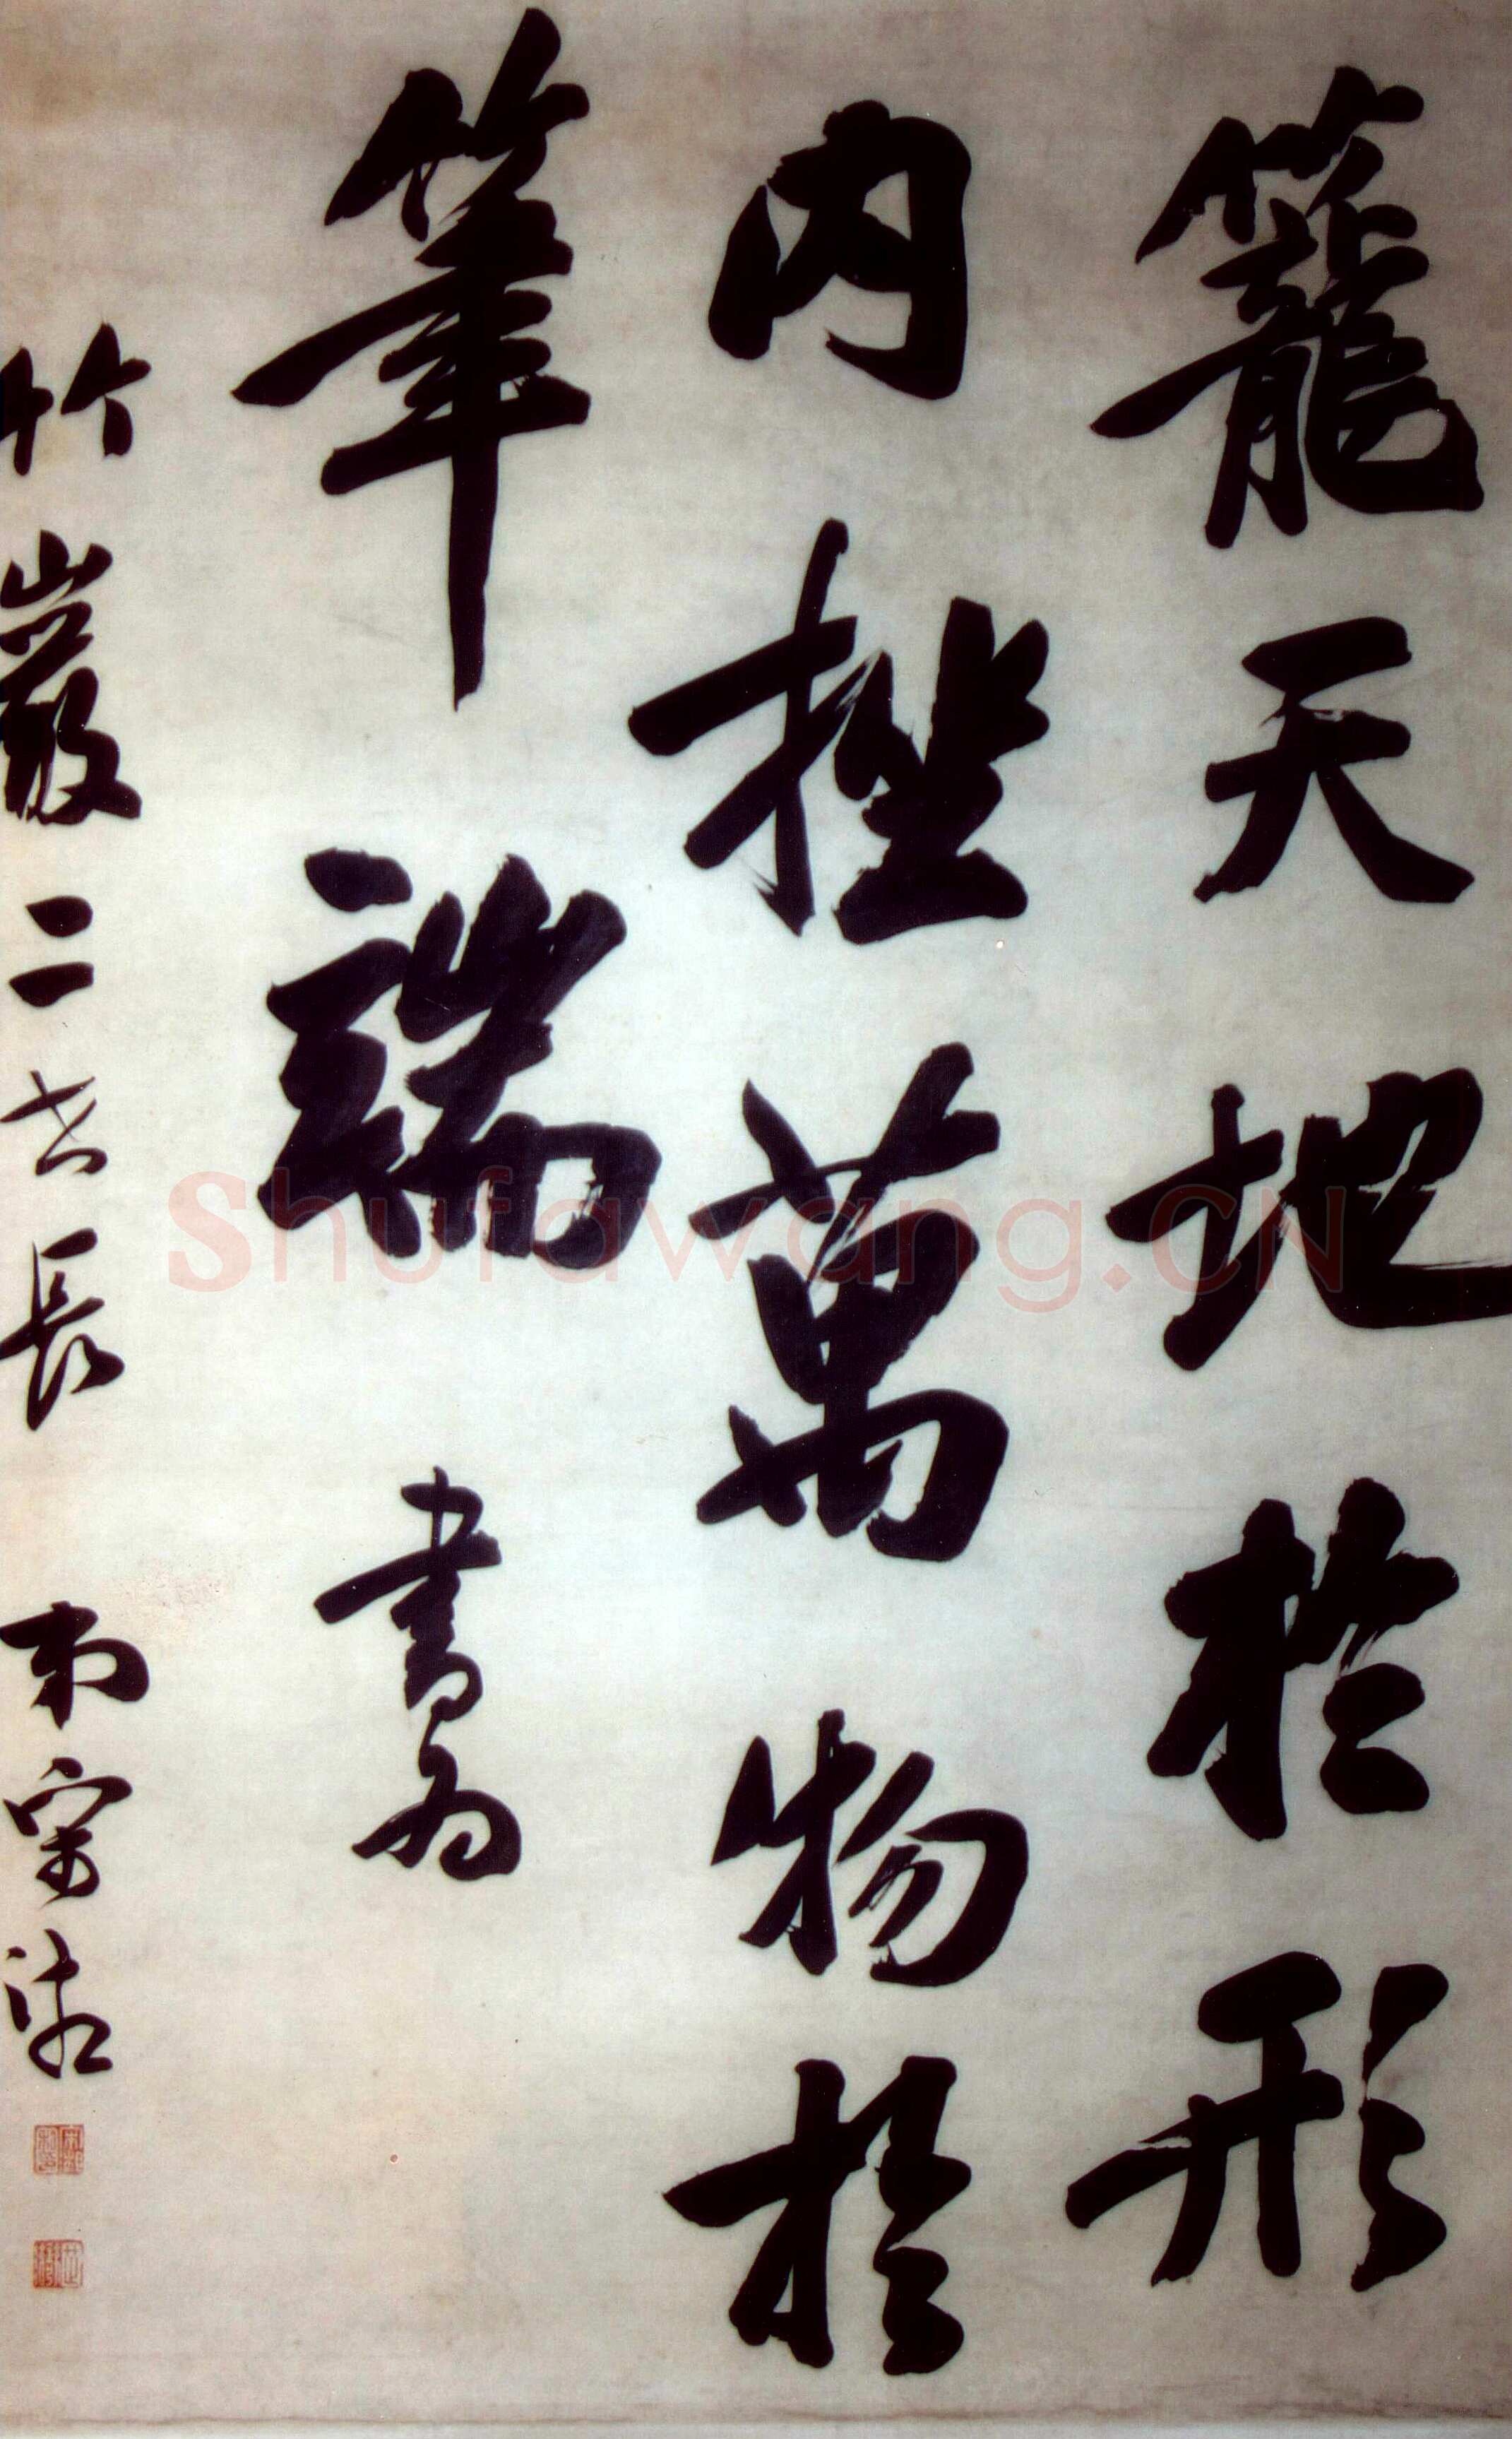 籠天地於形
内挫萬物於
筆端 書為
竹巖二長 弟宋湘
Shufawang.CN